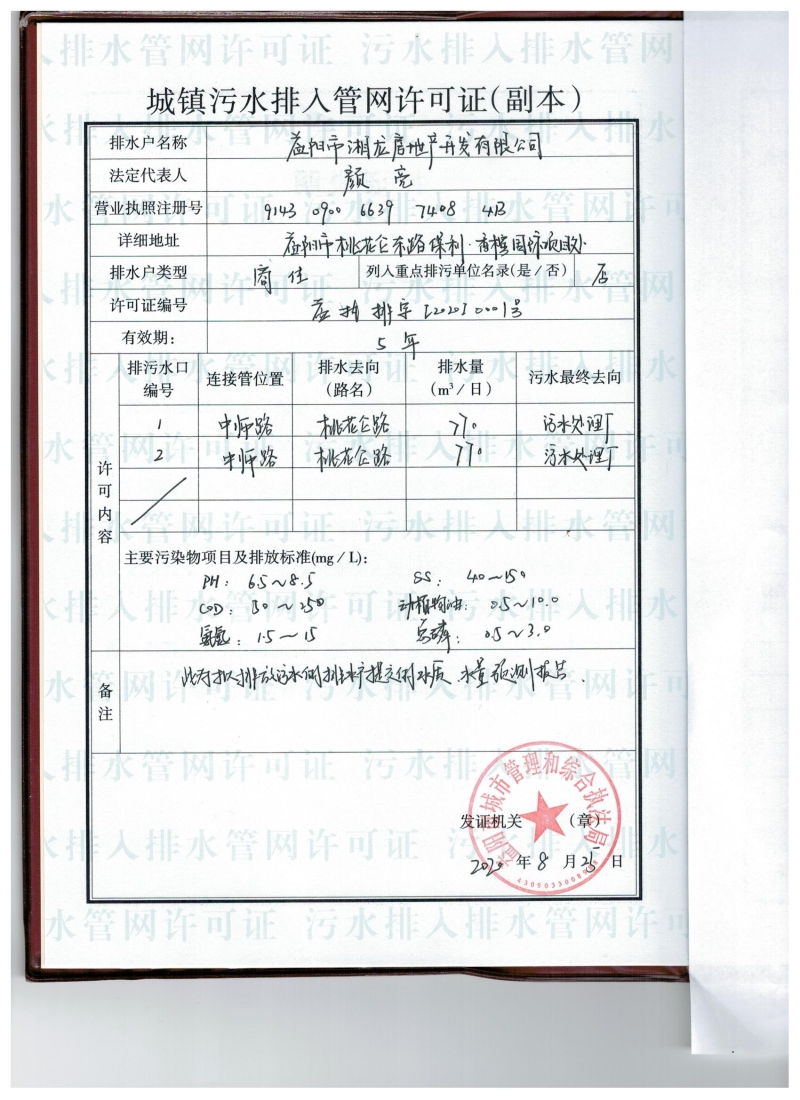 城镇污水排入管网许可证(副本)
排水户名称 益阳市湘龙房地产开发有限公司
法定代表人 颜亮
营业执照注册号 9143 0900 6639 7408 4B
详细地址 益阳市桃花仑东路保利·香槟国际项目处
排水户类型 商住 列入重点排污单位名录(是/否) 否
许可证编号 排字[2020]0001号
有效期: 5年
许可内容
排污水口编号 连接管位置 排水去向(路名) 排水量(m³/日) 污水最终去向
1 中师路 桃花仑路 770 污水处理厂
2 中师路 桃花仑路 770 污水处理厂
主要污染物项目及排放标准(mg/L):
PH: 6.5~8.5 SS: 40~150
COD: 50~250 动植物油: 0.5~10.0
氨氮: 1.5~15 总磷: 0.5~3.0
备注
此为拟排放污水例排水户提交例水质、水量预测报告.
发证机关 (章)
益阳市城市管理和综合执法局
2020年8月25日